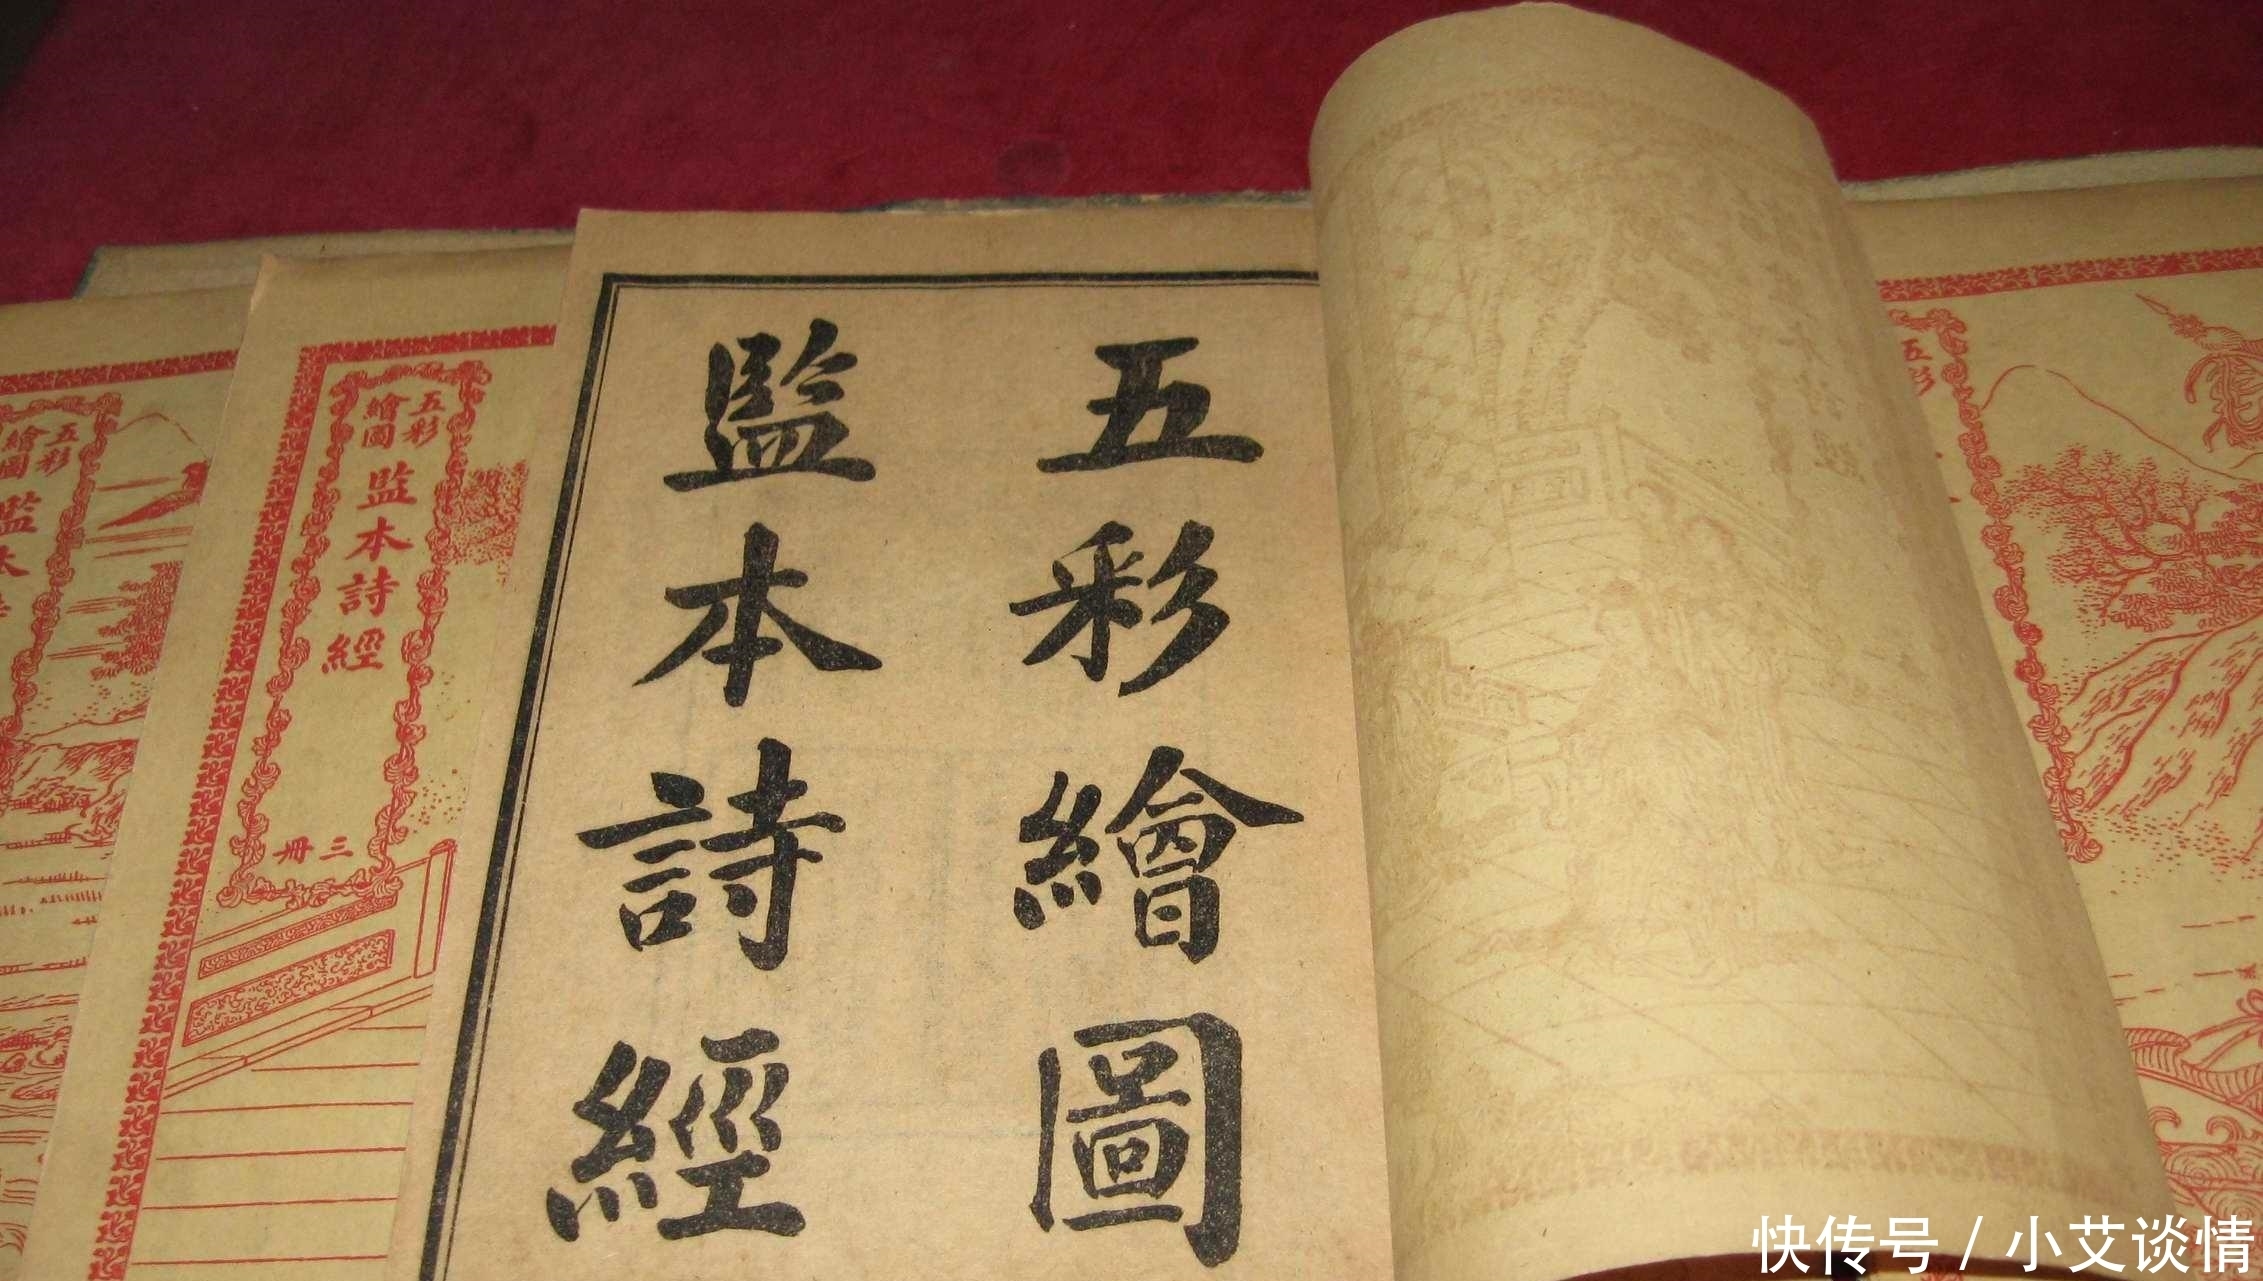 五彩繪圖
監本詩經
五彩
繪圖
監本詩經
三冊
五彩
繪圖
監本
五彩
快传号 / 小艾谈情